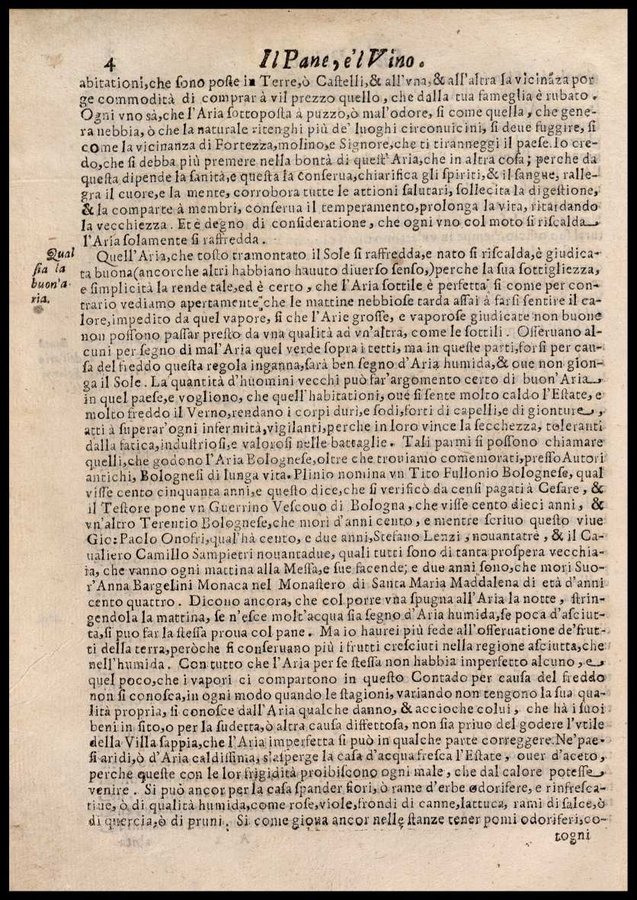 4 Il Pane, e'l Vino.
abitationi,che sono poste in Terre,ò Castelli,& all'vna,& all'altra la vicinãza por
ge commodità di comprar à vil prezzo quello, che dalla tua fameglia è rubato.
Ogni vno sà,che l'Aria sottoposta à puzzo,ò mal'odore, si come quella, che gene-
ra nebbia, ò che la naturale ritenghi più de' luoghi circonuicini, si deue fuggire, sì
come la vicinanza di Fortezza,molino,e Signore,che ti tiranneggi il paese. Io cre-
do,che si debba più premere nella bontà di quest'Aria,che in altra cosa; perche da
questa dipende la sanità,e questa la conserua,chiarifica gli spiriti,& il sangue, ralle-
gra il cuore,e la mente, corrobora tutte le attioni salutari, sollecita la digestione,
& la comparte à membri, conserua il temperamento,prolonga la vita, ritardando
la vecchiezza. Et è degno di consideratione, che ogni vno col moto si riscalda
l'Aria solamente si raffredda.
Qual sia la buon'aria.
Quell'Aria,che tosto tramontato il Sole si raffredda,e nato si riscalda,è giudica-
ta buona(ancorche altri habbiano hauuto diuerso senso,)perche la sua sottigliezza,
e simplicità la rende tale,ed è certo, che l'Aria sottile è perfetta; si come per con-
trario vediamo apertamente,che le mattine nebbiose tarda assai à farsi sentire il ca-
lore,impedito da quel vapore, sì che l'Arie grosse, e vaporose giudicate non buone
non possono passar presto da vna qualità ad vn'altra, come le sottili. Osseruano al-
cuni per segno di mal'Aria quel verde sopra i tetti, ma in queste parti,forsi per cau-
sa del freddo questa regola inganna,sarà ben segno d'Aria humida,& oue non gion-
ga il Sole. La quantità d'huomini vecchi può far'argomento certo di buon'Aria
in quel paese,e vogliono, che quell'habitationi, oue si sente molto caldo l'Estate, e
molto freddo il Verno,rendano i corpi duri,e sodi,forti di capelli,e di gionture,
atti à superar'ogni infermità,vigilanti,perche in loro vince la secchezza, toleranti
dalla fatica,industriosi,e valorosi nelle battaglie. Tali parmi si possono chiamare
quelli,che godono l'Aria Bolognese,oltre che trouiamo comemorati,presso Autori
antichi, Bolognesi di lunga vita. Plinio nomina vn Tito Fullonio Bolognese, qual
visse cento cinquanta anni,e questo dice,che si verificò da censi pagati à Cesare, &
il Testore pone vn Guerrino Vescouo di Bologna, che visse cento dieci anni, &
vn'altro Terentio Bolognese,che mori d'anni cento, e mentre scriuo questo viue
Gio: Paolo Onofri,qual'hà cento, e due anni,Stefano Lenzi, nouantatre, & il Ca-
ualiero Camillo Sampietri nouantadue, quali tutti sono di tanta prospera vecchia-
ia, che vanno ogni mattina alla Messa,e sue facende; e due anni sono,che mori Suo-
r'Anna Bargelini Monaca nel Monastero di Santa Maria Maddalena di età d'anni
cento quattro. Dicono ancora, che col porre vna spugna all'Aria la notte, strin-
gendola la mattina, se n'esce molt'acqua sia segno d'Aria humida,se poca d'asciut-
ta,si può far la stessa proua col pane. Ma io haurei più fede all'osseruatione de'frut-
ti della terra,peròche si conseruano più i frutti cresciuti nella regione asciutta,che
nell'humida. Con tutto che l'Aria per se stessa non habbia imperfetto alcuno, e
quel poco,che i vapori ci compartono in questo Contado per causa del freddo
non si conosca,in ogni modo quando le stagioni, variando non tengono la sua qua-
lità propria, si conosce dall'Aria qualche danno, & accioche colui, che hà i suoi
beni in sito,o per la sudetta,ò altra causa diffettosa, non sia priuo del godere l'vtile
della Villa sappia,che l'Aria imperfetta si può in qualche parte correggere.Ne'pae-
si aridi,ò d'Aria caldissima, s'asperge la casa d'acqua fresca l'Estate, ouer d'aceto,
perche queste con le lor frigidità proibiscono ogni male, che dal calore potesse
venire. Si può ancor per la casa spander fiori, ò rame d'erbe odorifere, e rinfresca-
tiue, ò di qualità humida,come rose,viole,frondi di canne,lattuca, rami di salce,ò
di quercia,ò di pruni. Si come gioua ancor nelle stanze tener pomi odoriferi,co-
togni